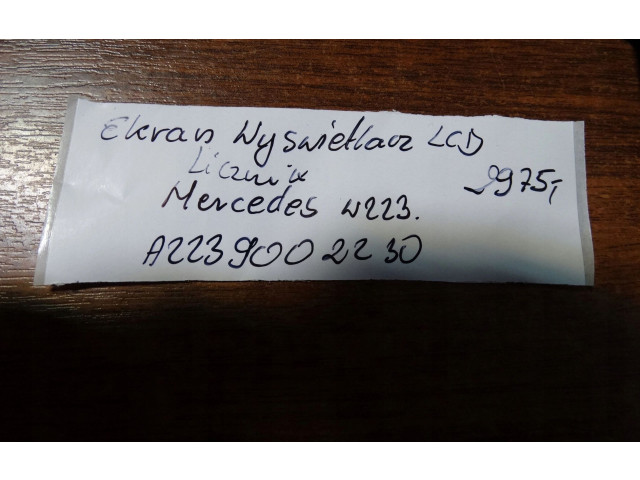 Ekran Wyświetlacz LCD
Licznik
Mercedes W223.
2975,-
A223 900 22 30